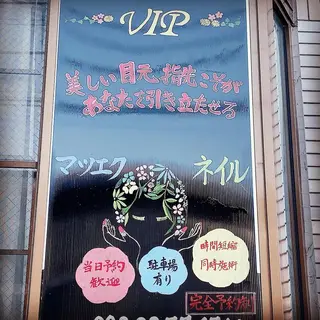 VIP
美しい目元、指先こそが
あなたを引き立たせる
マツエク
ネイル
当日予約
歓迎
駐車場
有り
時間短縮
同時施術
完全予約制